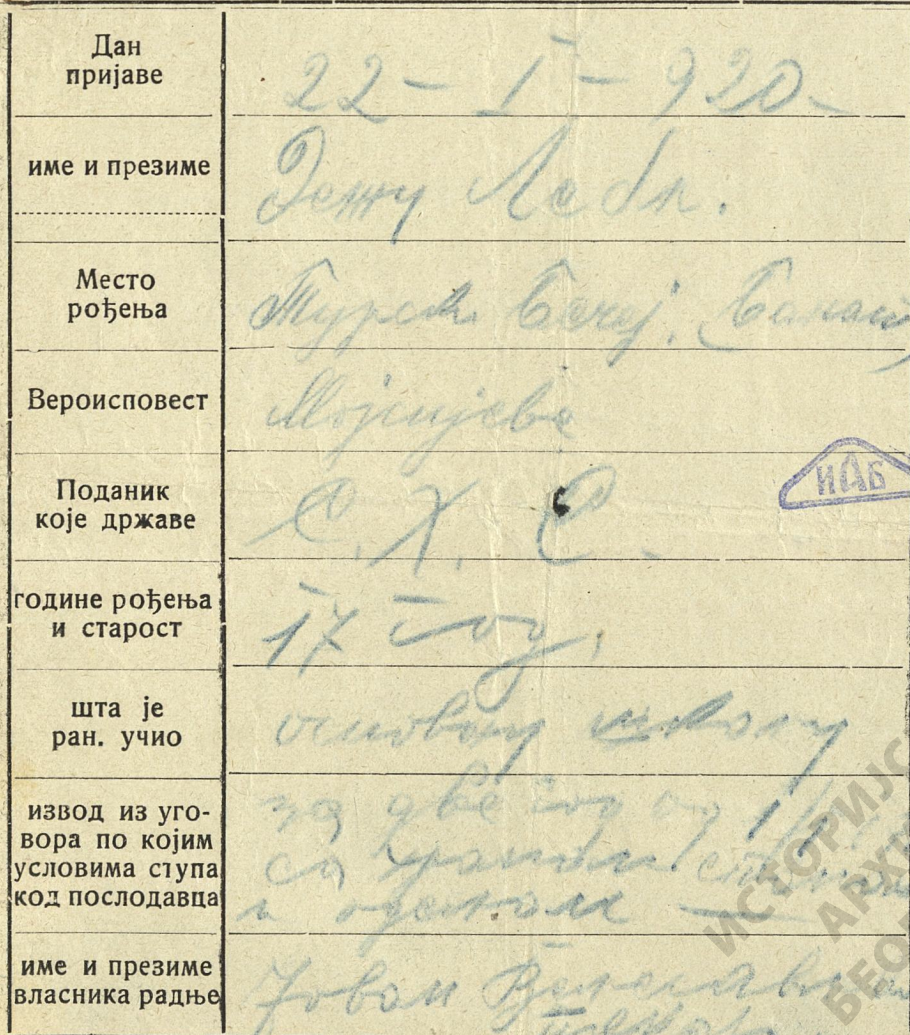 Дан
пријаве
22 - I - 920 -
име и презиме
Лебл.
Место
рођења
Турски Бечеј. (Банат)
Вероисповест
Мојсијеве
Поданик
које државе
С. Х. С.
ИАБ
године рођења
и старост
17 год.
шта је
ран. учио
основну школу
извод из уго-
вора по којим
условима ступа
код послодавца
за две год од 1/I
са храном стан
и оделом —
име и презиме
власника радње
Јован
ИСТОРИЈС
АРХИ
БЕО